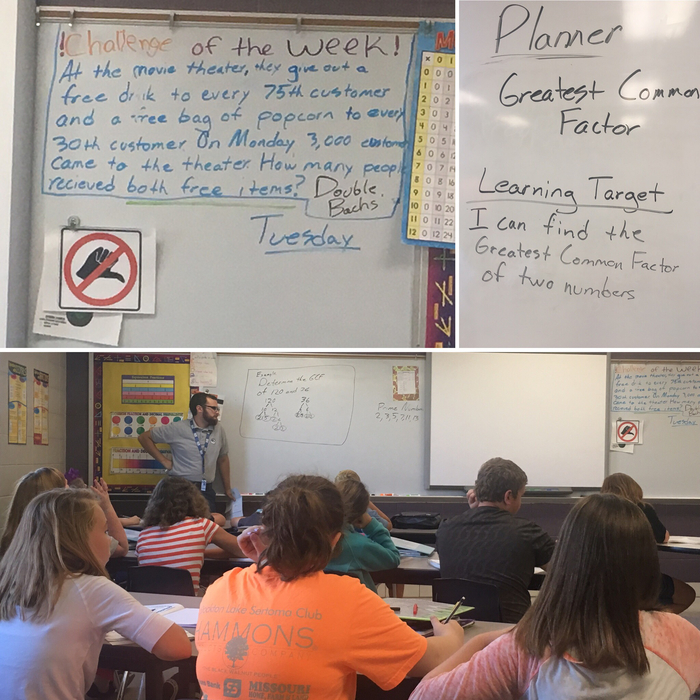 !Challenge of the Week!
At the movie theater, they give out a
free drink to every 75th customer
and a free bag of popcorn to every
30th customer. On Monday, 3,000 custome
came to the theater. How many peopl
recieved both free items?
Double
Bachs
Tuesday
M
x 0 1
0 0
1 0
2 0
3 0
4 0
5 0
6 0
7 0
8 0
9 0
10 0
11 0
12 0
Planner
Greatest Common
Factor
Learning Target
I can find the
Greatest Common Factor
of two numbers
Example
Determine the GCF
of 120 and 36
36
Prime Number
2, 3, 5, 7, 11, 13
Challenge of the Week
Tuesday
Sarcoma Club
HAMMONS
MISSOURI